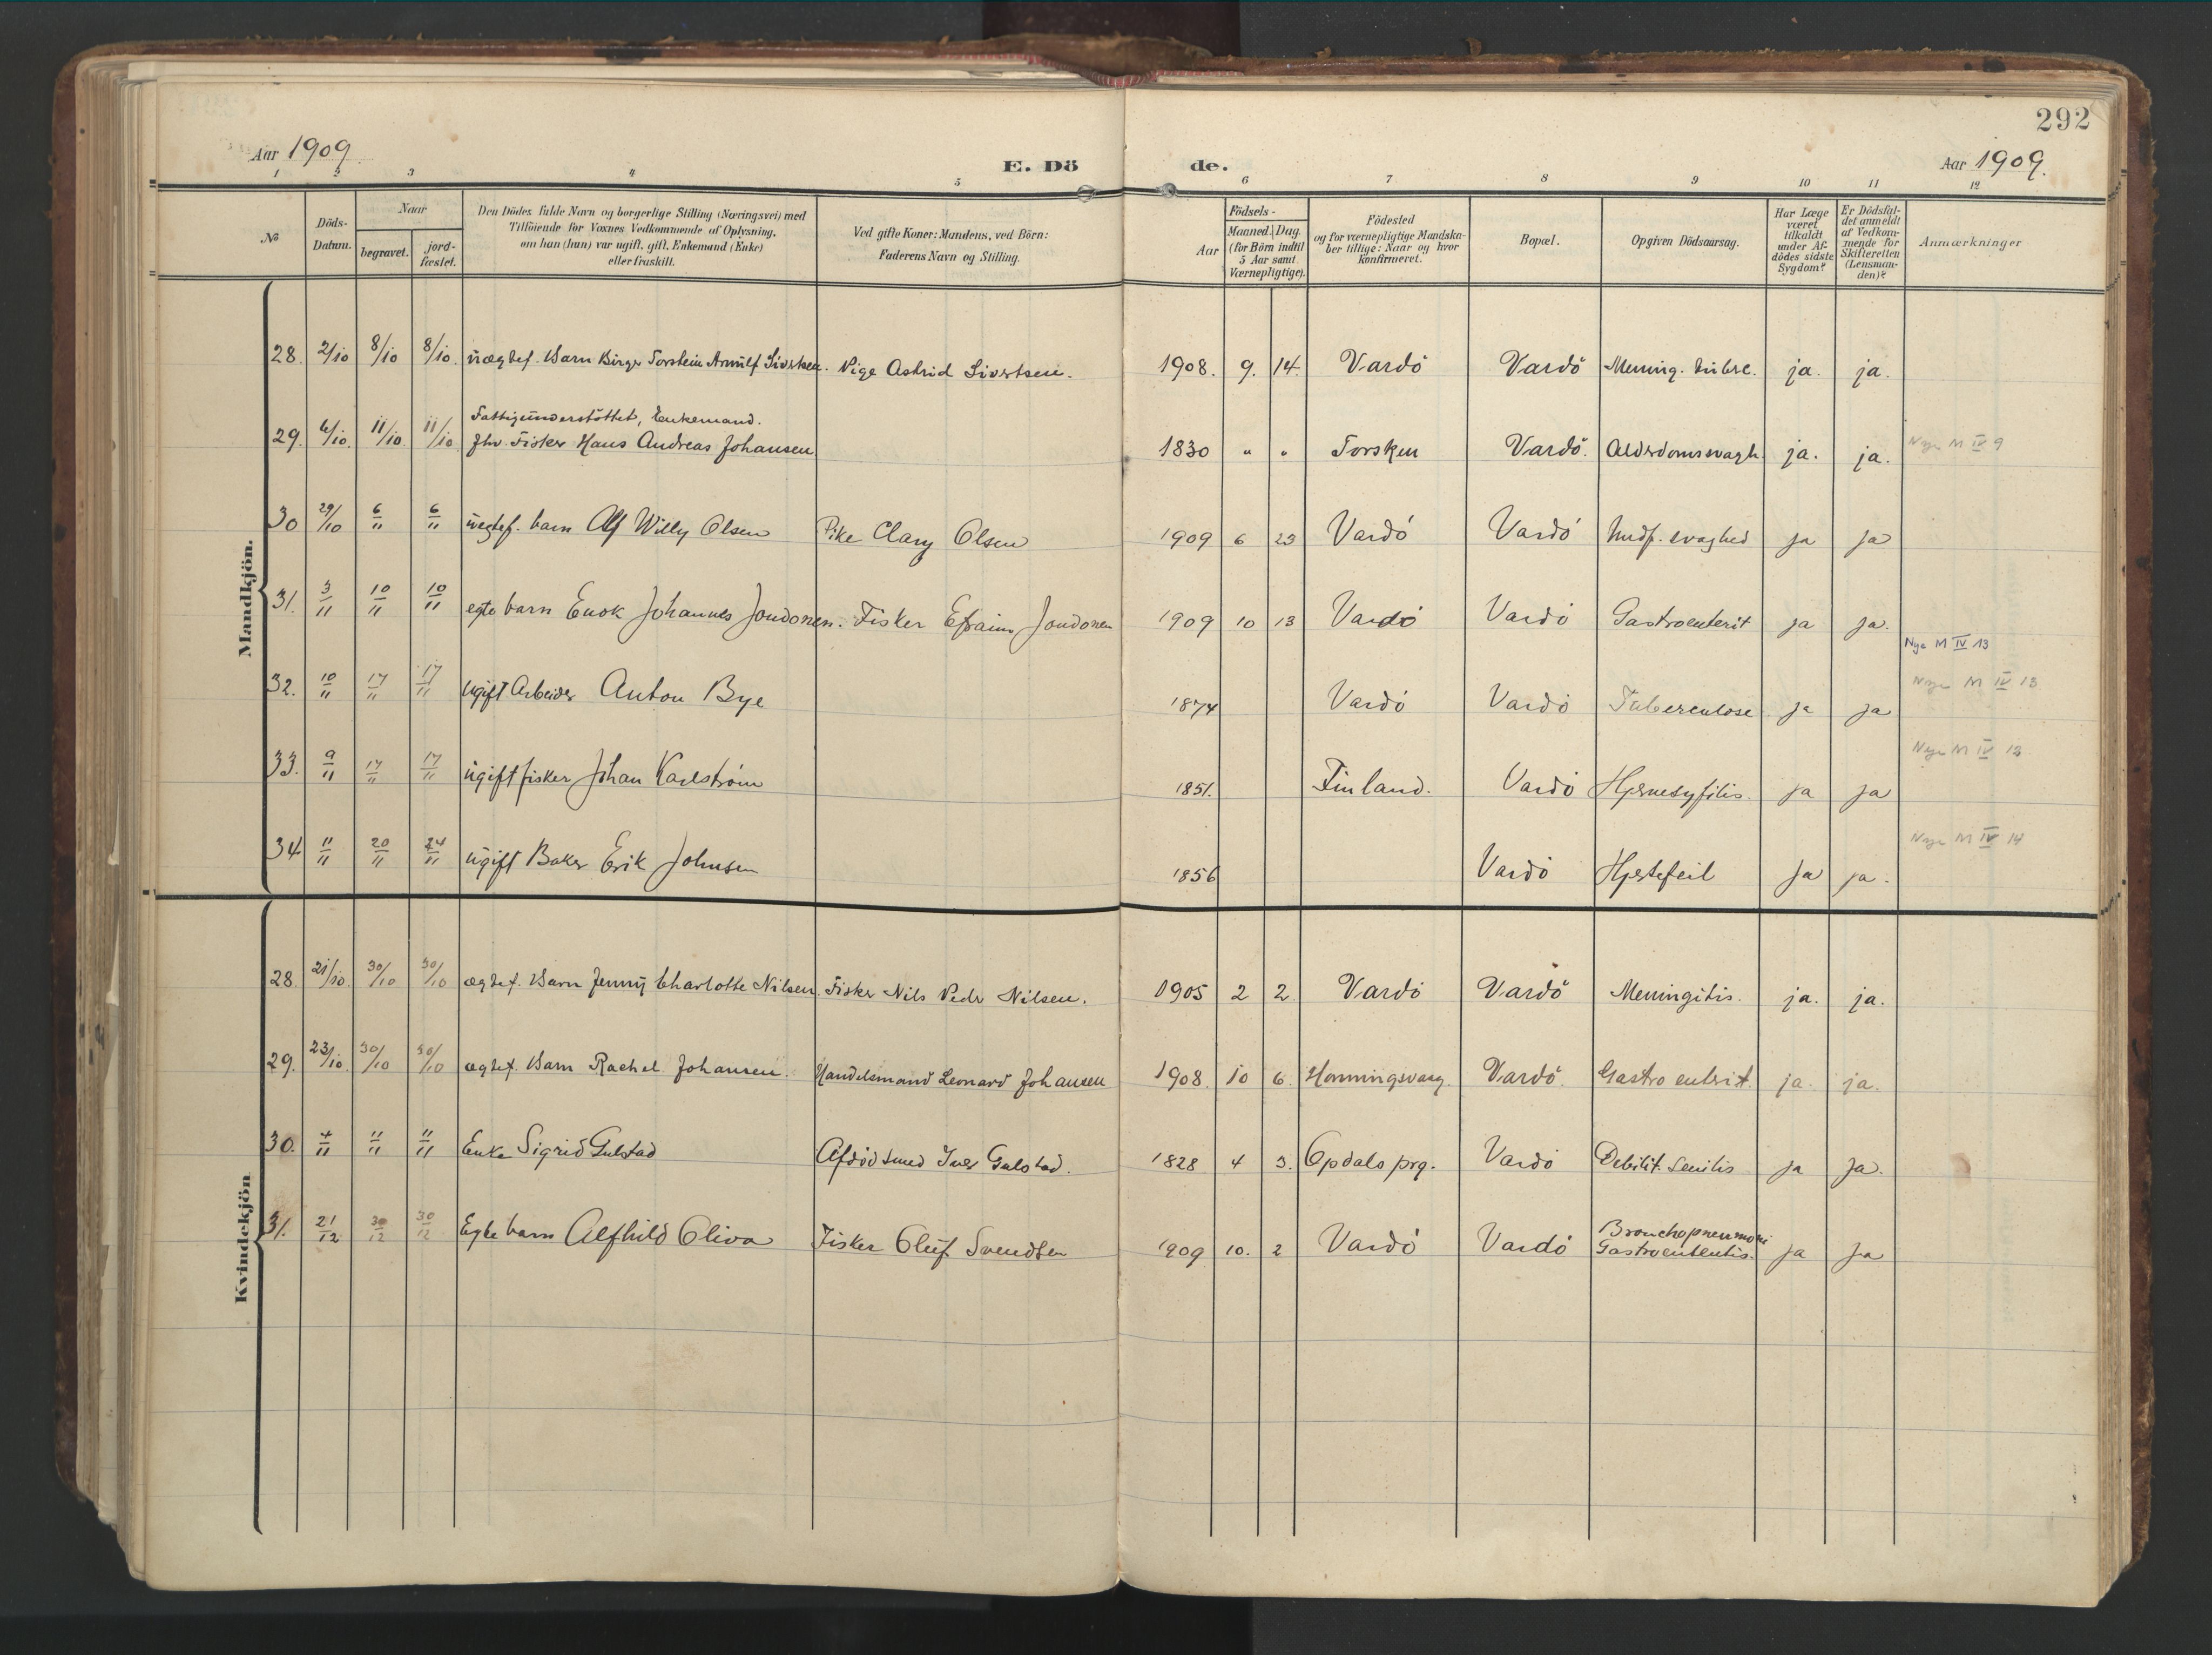 292
Aar 1909.
E. Dö de.
Aar 1909.
1 2 3 4 5 6 7 8 9 10 11 12
No
Döds-Datum.
Naar
begravet.
jord-fæstet.
Den Dödes fulde Navn og borgerlige Stilling (Næringsvei) med
Tilföiende for Voxnes Vedkommende af Oplysning,
om han (hun) var ugift, gift, Enkemand (Enke)
eller fraskilt.
Ved gifte Koner: Mandens, ved Börn:
Faderens Navn og Stilling.
Födsels-
Aar
Maaned. Dag.
(for Börn indtil
5 Aar samt
Værnepligtige).
Födested
og for værnepligtige Mandska-
ber tillige: Naar og hvor
konfirmeret.
Bopæl.
Opgiven Dödsaarsag.
Har Læge
været
tilkaldt
under Af-
dödes sidste
Sygdom?
Er Dödsfal-
det anmeldt
af Vedkom-
mende for
Skifteretten
(Lensman-
den)?
Anmærkninger
Mandkjön.
28. 2/10 8/10 8/10. uægtef. Barn Birger Torstein Arnulf Sivertsen. Pige Astrid Sivertsen. 1908. 9. 14. Vardö Vardö Mening. tuberc. ja. ja.
Fattigunderstöttet, Enkemand.
29. 6/10. 11/10. 11/10 fhv. Fisker Hans Andreas Johansen 1830 " " Torsken Vardö. Alderdomssvagh. ja. ja. Nye M IV 9
30 29/10 6/11 6/11 uegtef. barn Alf Willy Olsen Pike Clary Olsen 1909 6 23 Vardö Vardö Medf. svaghed ja ja
31. 3/11 10/11 10/11 egte barn Enok Johannes Joudonen. Fisker Efraim Joudonen 1909 10 13 Vardö Vardö Gastroenterit ja ja.
Nye M IV 13
32. 10/11 17/11 17/11 ugift Arbeider Anton Bye 1874 Vardö Vardö Tuberculose ja ja Nye M IV 13
33. 9/11 17/11 17/11 ugift fisker Johan Karlström 1851. Finland. Vardö Hjernesyfilis. ja ja Nye M IV 13
34 11/11 20/11 24/11 ugift Baker Erik Johnsen 1856 Vardö Hjertefeil ja ja. Nye M IV 14
Kvindekjön
28. 21/10. 30/10 30/10 ægtef. Barn Jenny Charlotte Nilsen. Fisker Nils Peder Nilsen. 1905 2 2. Vardö Vardö Meningitis. ja. ja.
29. 23/10. 30/10 30/10 ægtef. Barn Rachel Johansen. Handelsmand Leonard Johansen 1908. 10 6. Honningsvaag. Vardö. Gastro enterit. ja. ja.
30. 4/11 11/11 11/11 Enke Sigrid Gulstad Afdöd smed Iver Gulstad. 1828 4 3. Opdals prg. Vardö Debilit. Senilis ja ja.
31. 21/12 30/12 30/12 Egte barn Alfhild Oliva Fisker Oluf Svendsen 1909 10. 2 Vardö Vardö Bronchopneumoni
Gastroenteritis. ja ja